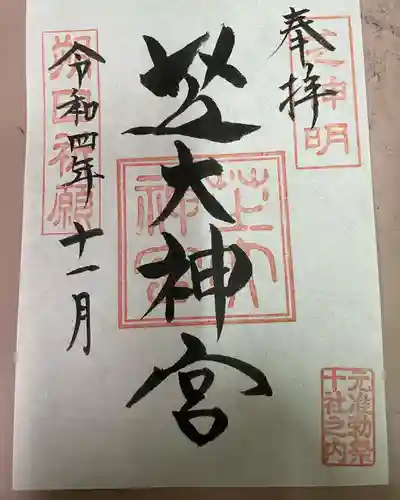 奉拝
芝神明
芝大神宮
芝大
神宮
元准勅祭
十社之内
朔日祈願
令和四年十一月